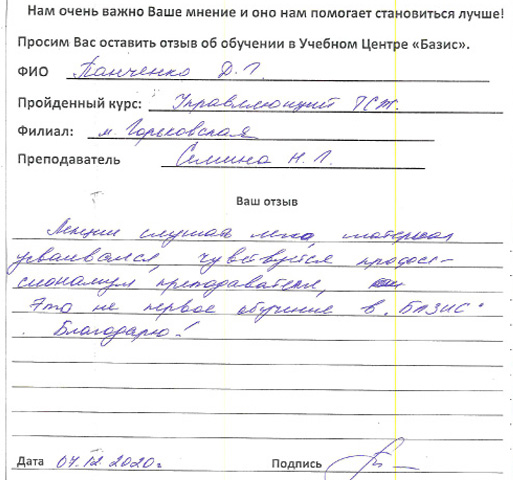 Нам очень важно Ваше мнение и оно нам помогает становиться лучше!
Просим Вас оставить отзыв об обучении в Учебном Центре «Базис».
ФИО Панченко Д.Г.
Пройденный курс: Управляющий ТСЖ.
Филиал: м. Горьковская
Преподаватель Семина Н.Л.
Ваш отзыв
Лекции слушал легко, материал
усваивался, чувствуется професс-
сионализм преподавателя,
Это не первое обучение в "БАЗИС"
Благодарю!
Дата 07.12.2020г. Подпись